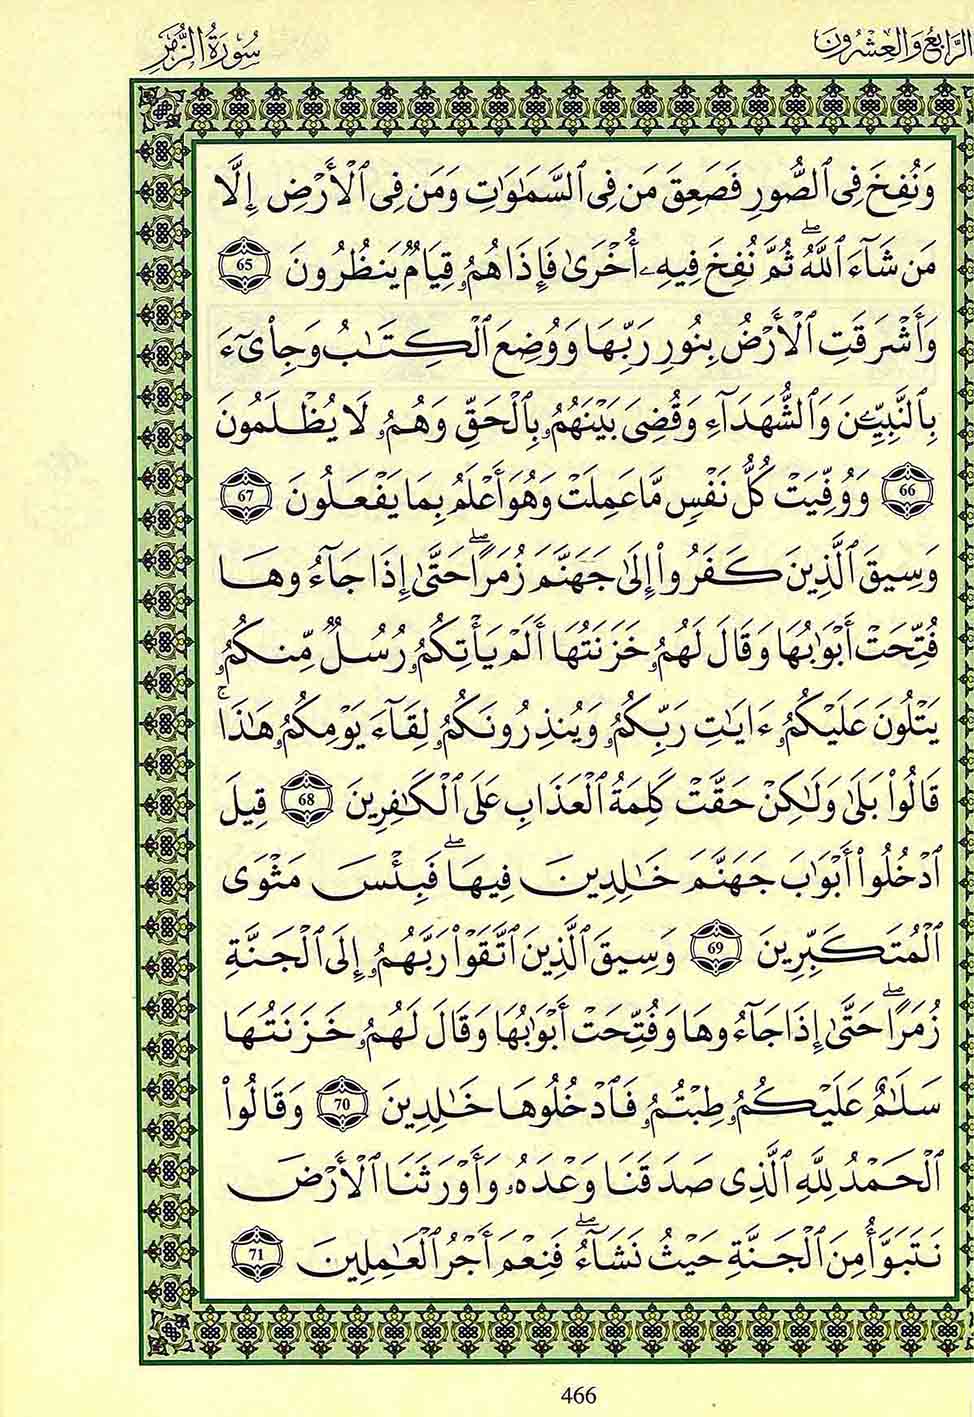 الرَّابِعُ وَالْعِشْرُونَ
سُورَةُ الزُّمَرِ
وَنُفِخَ فِي ٱلصُّورِ فَصَعِقَ مَن فِي ٱلسَّمَٰوَٰتِ وَمَن فِي ٱلْأَرْضِ إِلَّا
مَن شَآءَ ٱللَّهُۖ ثُمَّ نُفِخَ فِيهِۦ أُخْرَىٰ فَإِذَا هُمُۥ قِيَامٌ يَنظُرُونَ 65
وَأَشْرَقَتِ ٱلْأَرْضُ بِنُورِ رَبِّهَا وَوُضِعَ ٱلْكِتَٰبُ وَجِاْيٓءَ
بِٱلنَّبِيِّـۧنَ وَٱلشُّهَدَآءِ وَقُضِيَ بَيْنَهُمُۥ بِٱلْحَقِّ وَهُمُۥ لَا يُظْلَمُونَ
66 وَوُفِّيَتْ كُلُّ نَفْسٍ مَّا عَمِلَتْ وَهُوَ أَعْلَمُ بِمَا يَفْعَلُونَ 67
وَسِيقَ ٱلَّذِينَ كَفَرُوٓاْ إِلَىٰ جَهَنَّمَ زُمَرًاۖ حَتَّىٰ إِذَا جَآءُوهَا
فُتِّحَتْ أَبْوَٰبُهَا وَقَالَ لَهُمُۥ خَزَنَتُهَا أَلَمْ يَأْتِكُمُۥ رُسُلٌ مِّنكُمُۥ
يَتْلُونَ عَلَيْكُمُۥ ءَايَٰتِ رَبِّكُمُۥ وَيُنذِرُونَكُمُۥ لِقَآءَ يَوْمِكُمُۥ هَٰذَاۚ
قَالُواْ بَلَىٰ وَلَٰكِنْ حَقَّتْ كَلِمَةُ ٱلْعَذَابِ عَلَى ٱلْكَٰفِرِينَ 68 قِيلَ
ٱدْخُلُوٓاْ أَبْوَٰبَ جَهَنَّمَ خَٰلِدِينَ فِيهَاۖ فَبِئْسَ مَثْوَى
ٱلْمُتَكَبِّرِينَ 69 وَسِيقَ ٱلَّذِينَ ٱتَّقَوْاْ رَبَّهُمُۥ إِلَى ٱلْجَنَّةِ
زُمَرًاۖ حَتَّىٰ إِذَا جَآءُوهَا وَفُتِّحَتْ أَبْوَٰبُهَا وَقَالَ لَهُمُۥ خَزَنَتُهَا
سَلَٰمٌ عَلَيْكُمُۥ طِبْتُمُۥ فَٱدْخُلُوهَا خَٰلِدِينَ 70 وَقَالُواْ
ٱلْحَمْدُ لِلَّهِ ٱلَّذِي صَدَقَنَا وَعْدَهُۥ وَأَوْرَثَنَا ٱلْأَرْضَ
نَتَبَوَّأُ مِنَ ٱلْجَنَّةِ حَيْثُ نَشَآءُۖ فَنِعْمَ أَجْرُ ٱلْعَٰمِلِينَ 71
466